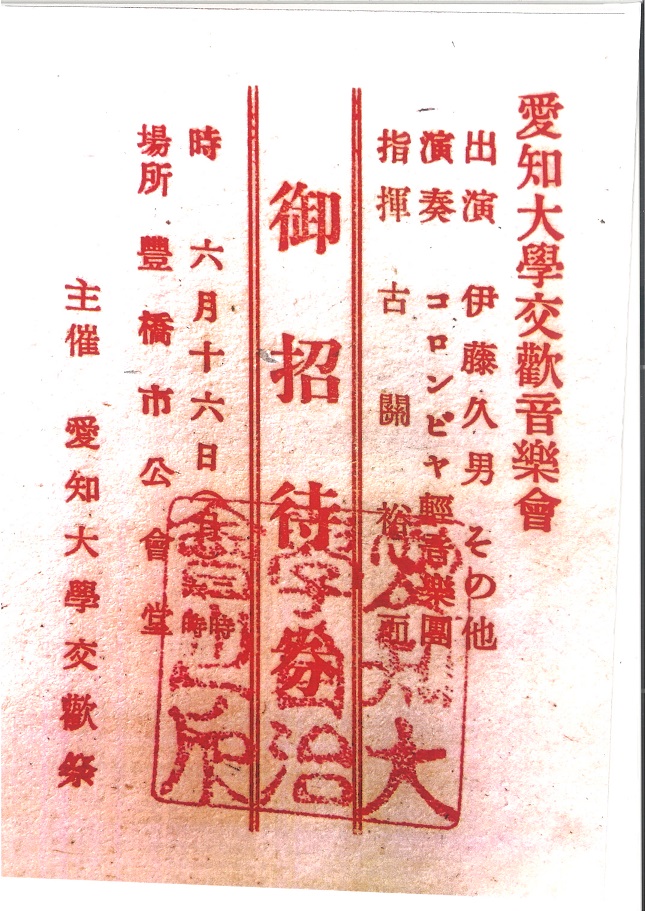 愛知大學交歡音樂會
出演 伊藤久男 その他
演奏 コロンビヤ輕音樂團
指揮 古關裕而
御招待券
時 六月十六日
場所 豐橋市公會堂
主催 愛知大學交歡祭